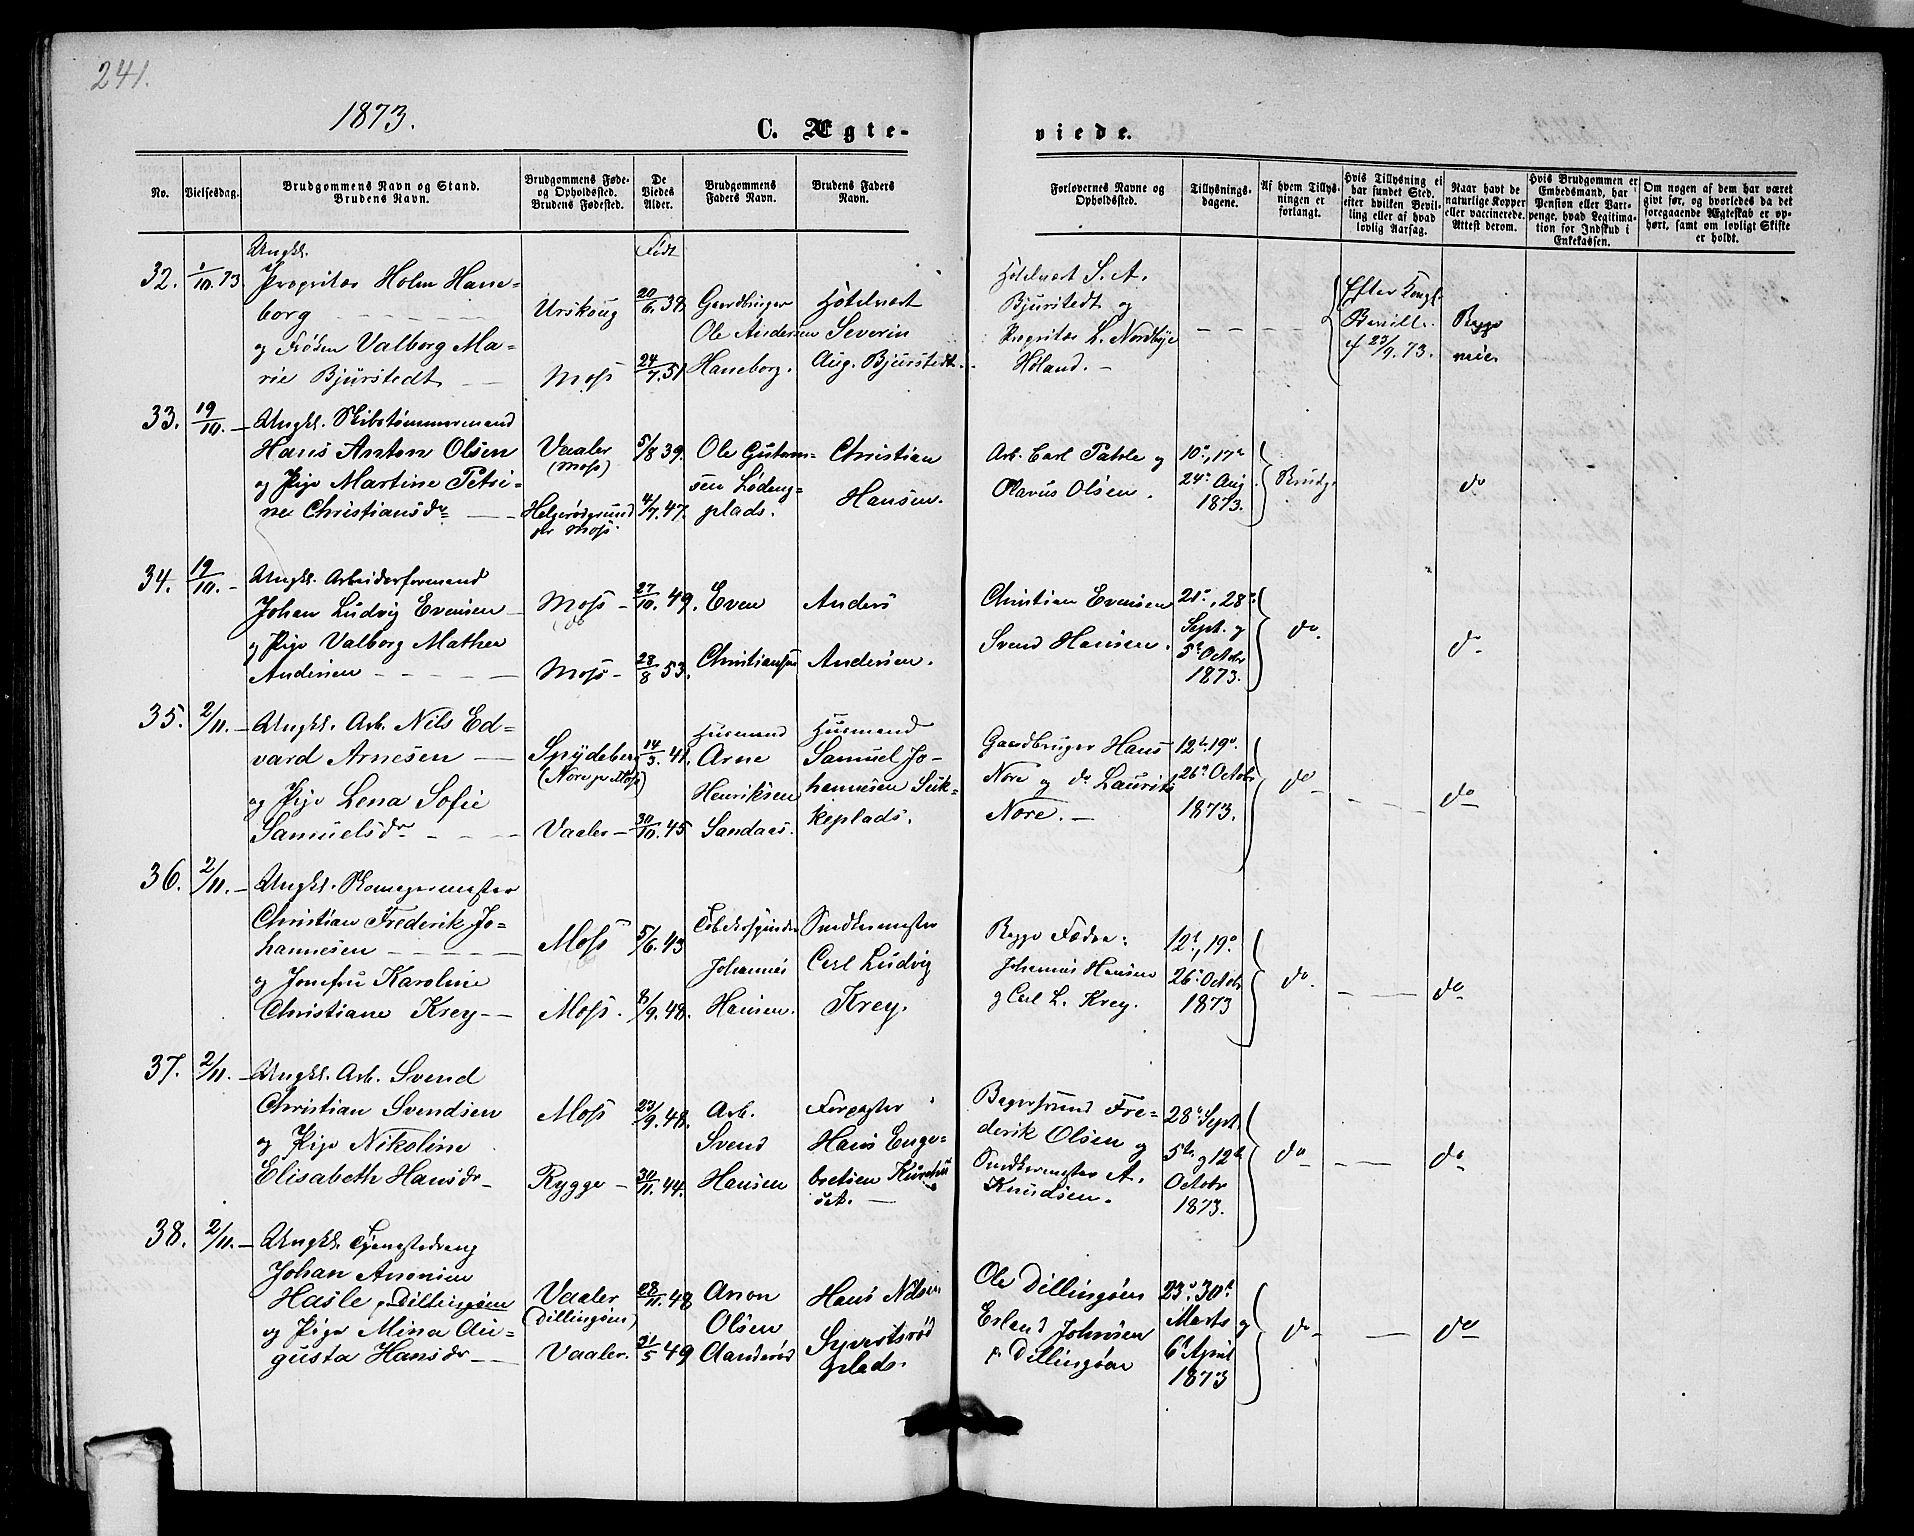 241.
1873.
C. Ægte-
viede.
No.
Vielsesdag.
Brudgommens Navn og Stand.
Brudens Navn.
Brudgommens Føde-
og Opholdssted.
Brudens Fødested.
De
Viedes
Alder.
Brudgommens
Faders Navn.
Brudens Faders
Navn.
Forlovernes Navne og
Opholdssted.
Tillysnings-
dagene.
Af hvem Tillys-
ningen er
forlangt.
Hvis Tillysning ei
har fundet Sted,
efter hvilken Bevil-
ling eller af hvad
lovlig Aarsag.
Naar havt de
naturlige Kopper
eller vaccinerede.
Attest derom.
Hvis Brudgommen er
Embedsmand, har
Pension eller Vart-
penge, hvad Legitima-
tion for Indskud i
Enkekassen.
Om nogen af dem har været
givt før, og hvorledes da det
foregaaende Ægteskab er op-
hørt, samt om lovligt Skifte
er holdt.
32. 1/10. 73.
Ungkl.
Propritær Holm Hane-
borg
og Frøken Valborg Ma-
rie Bjurstedt
Urskoug
Moss
Født
20/6. 38.
24/7. 51
Gaardbruger
Ole Andersen
Haneborg.
Hôtelvært
Severin
Aug. Bjurstedt.
Hôtelvært S. A.
Bjurstedt og
Propritær L. Nordbye
Høland.
Efter Kongl.
Bevill.
af 23/9. 73.
Begge
vac.
33. 19/10. —
Ungkl. Skibstømmermand
Hans Anton Olsen
og Pige Martine Petri-
ne Christiansdr
Vaaler
(Moss)
Helgerødgrund
pr Moss.
5/8 39.
4/7. 47.
Ole Gustav-
sen Lödeng-
plads.
Christian
Hansen.
Arb. Carl Tahle og
Olavus Olsen.
10de, 17de
24de Aug.
1873.
Brudg.
do
34. 19/10. —
Ungkl. Arbeiderformand
Johan Ludvig Evensen
og Pige Valborg Mathea
Andersen
Moss
do
Moss
27/10. 49.
28/8 53.
Even
Christiansen
Anders
Andersen.
Christian Evensen
Svend Hansen.
21de, 28de
Sept. og
5te Octbr
1873.
do
do
35. 2/11. —
Ungkl. Arb. Nils Ed-
vard Arnesen
og Pige Lena Sofie
Samuelsdr
Spydeberg
(Nore pr Moss)
Vaaler
14/3. 41.
30/10. 45
Husmand
Arne
Henriksen
Sandaas.
Husmand
Samuel Jo-
hannesen Sik-
keplads.
Gaardbruger Hans
Nore og do Laurits
Nore.
12te, 19de
26de Octobr
1873.
do
do
36. 2/11. —
Ungkl. Skomagermester
Christian Frederik Jo-
hannesen
og Jomfru Karoline
Christiane Krey
Moss
Moss.
5/6. 43
8/9. 48.
Johannes
Hansen.
Snedkermester
Carl Ludvig
Krey.
Begge Fædre:
Johannes Hansen
og Carl L. Krey.
12te, 19de
26de Octobr
1873
do
do
37. 2/11. —
Ungkl. Arb. Svend
Christian Svendsen
og Pige Nikoline
Elisabeth Hansdr
Moss
Rygge
23/9. 48.
30/11. 44.
Arb.
Svend
Hansen
Forpagter
Hans Enge-
bretsen
Bagersvend Fre-
derik Olsen og
Snedkermester A.
Knudsen.
28de Sept.
5te og 12te
Octobr
1873.
do
do
38. 2/11. —
Ungkl. Tjenestedreng
Johan Aronsen
Hasle, Dillingøen
og Pige Mina Au-
gusta Hansdr
Vaaler
(Dillingøen)
Vaaler.
28/11. 48
31/5 49
Aron
Olsen
Aanderød
Hans Nilsen
Syvertsrød
plads.
Ole Dillingøen
Erland Johnsen
pr Dillingøen
23de 30te
Marts og
6te April
1873
do
do